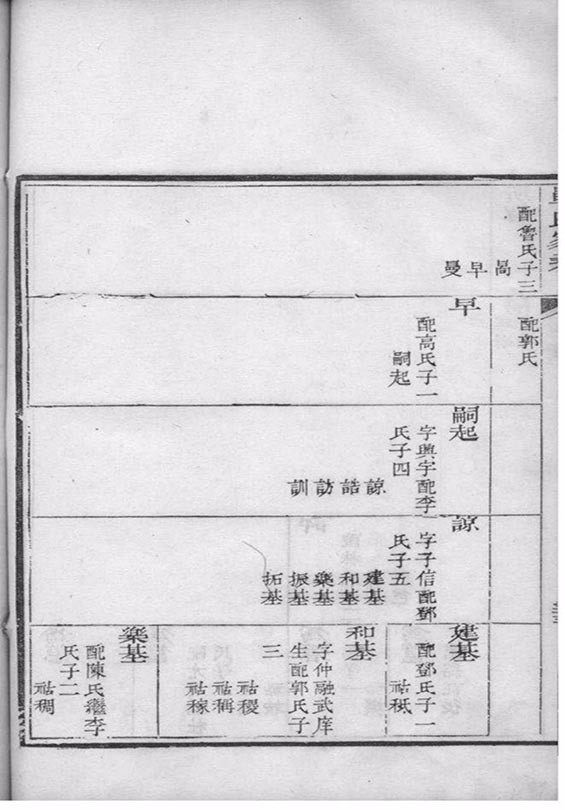 配魯氏子三
咼
早
曼
配郭氏
早
配高氏子一
嗣起
嗣起
字興宇配李
氏子四
諒
誥
訪
訓
諒
字子信配鄧
氏子五
建基
和基
樂基
振基
拓基
建基
配鄧氏子一
祜秪
和基
字仲融武庠
生配郭氏子
三
祜稷
祜稱
祜稼
樂基
配陳氏繼李
氏子二
祜稠